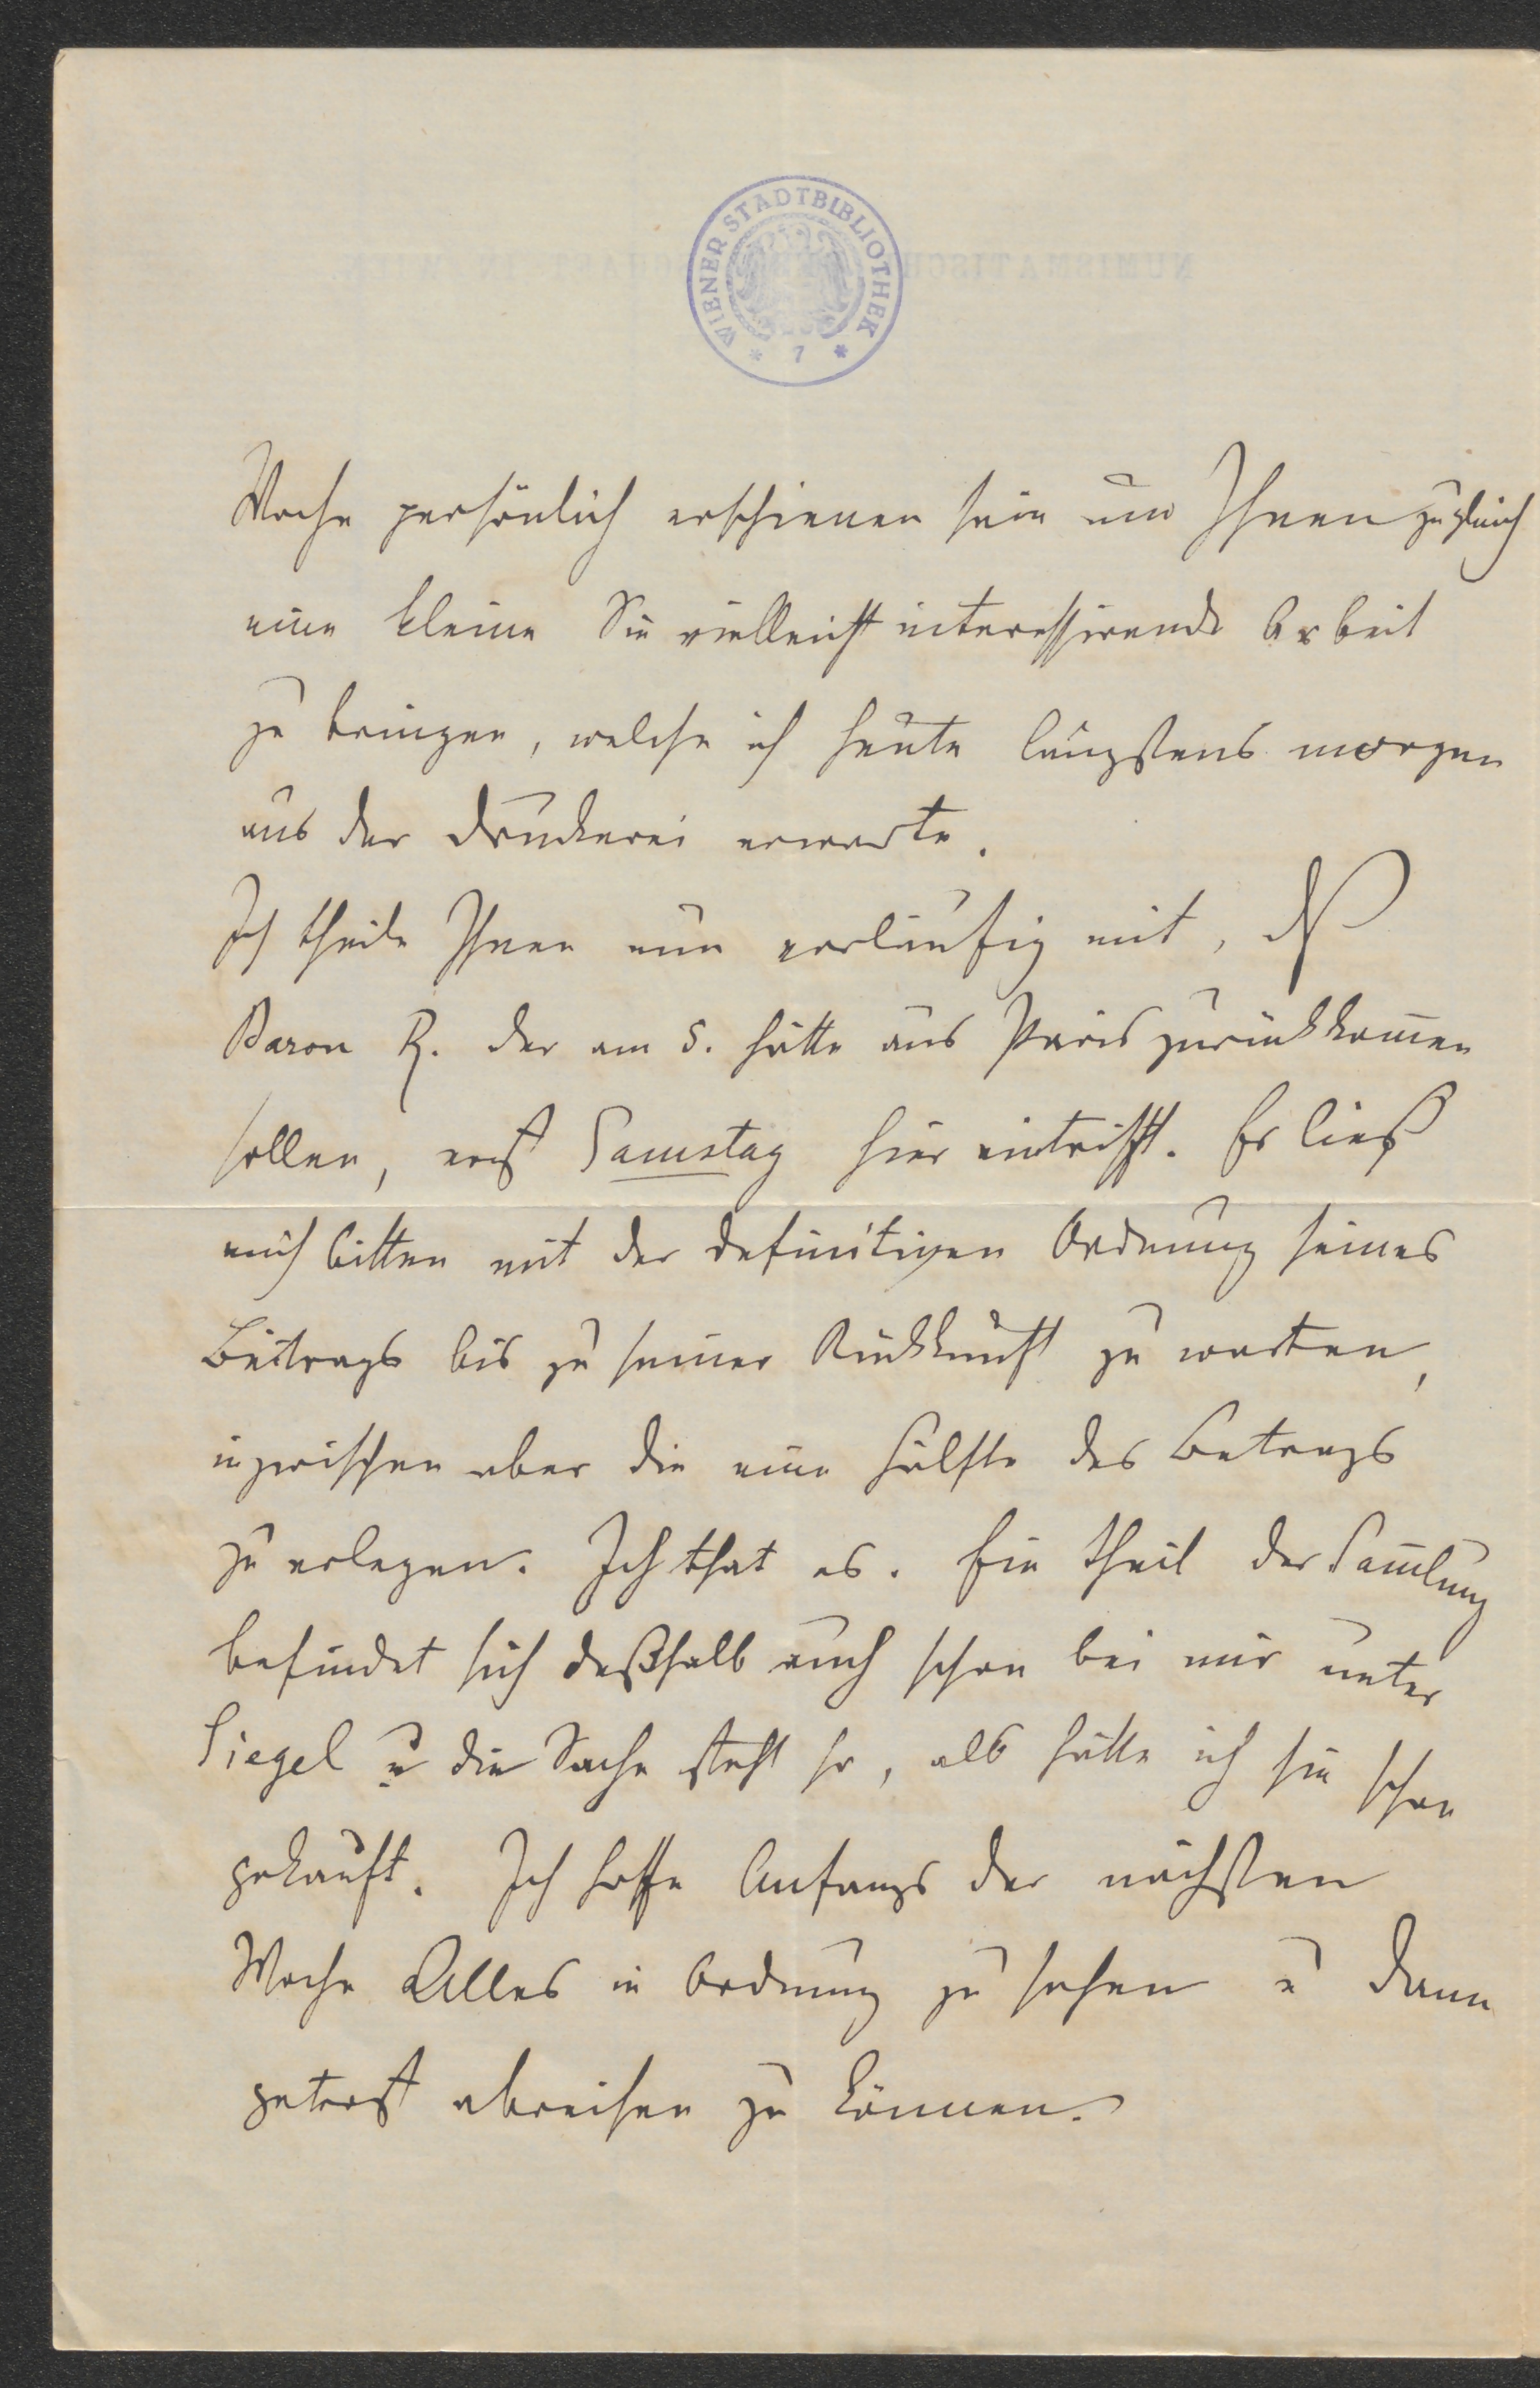 WIENER STADTBIBLIOTHEK
* 7 *
Woche persönlich erschienen sein um Ihnen zugleich
eine kleine Sie vielleicht interessirende Arbeit
zu bringen, welche ich heute längstens morgen
aus der Druckerei erwarte.
Ich theile Ihnen nun vorläufig mit, dß
Baron R. der am 5. hätte aus Paris zurückkom̅en
sollen, erst Samstag hier eintrifft. Er ließ
mich bitten mit der definitiven Ordnung seines
Beitrags bis zu seiner Rückkunft zu warten,
inzwischen aber die eine Hälfte des Betrags
zu erlegen. Ich that es. Ein Theil der Sam̅lung
befindet sich deßhalb auch schon bei mir unter
Siegel u die Sache steht so, als hätte ich sie schon
gekauft. Ich hoffe Anfangs der nächsten
Woche Alles in Ordnung zu sehen u dann
getrost abreisen zu können.